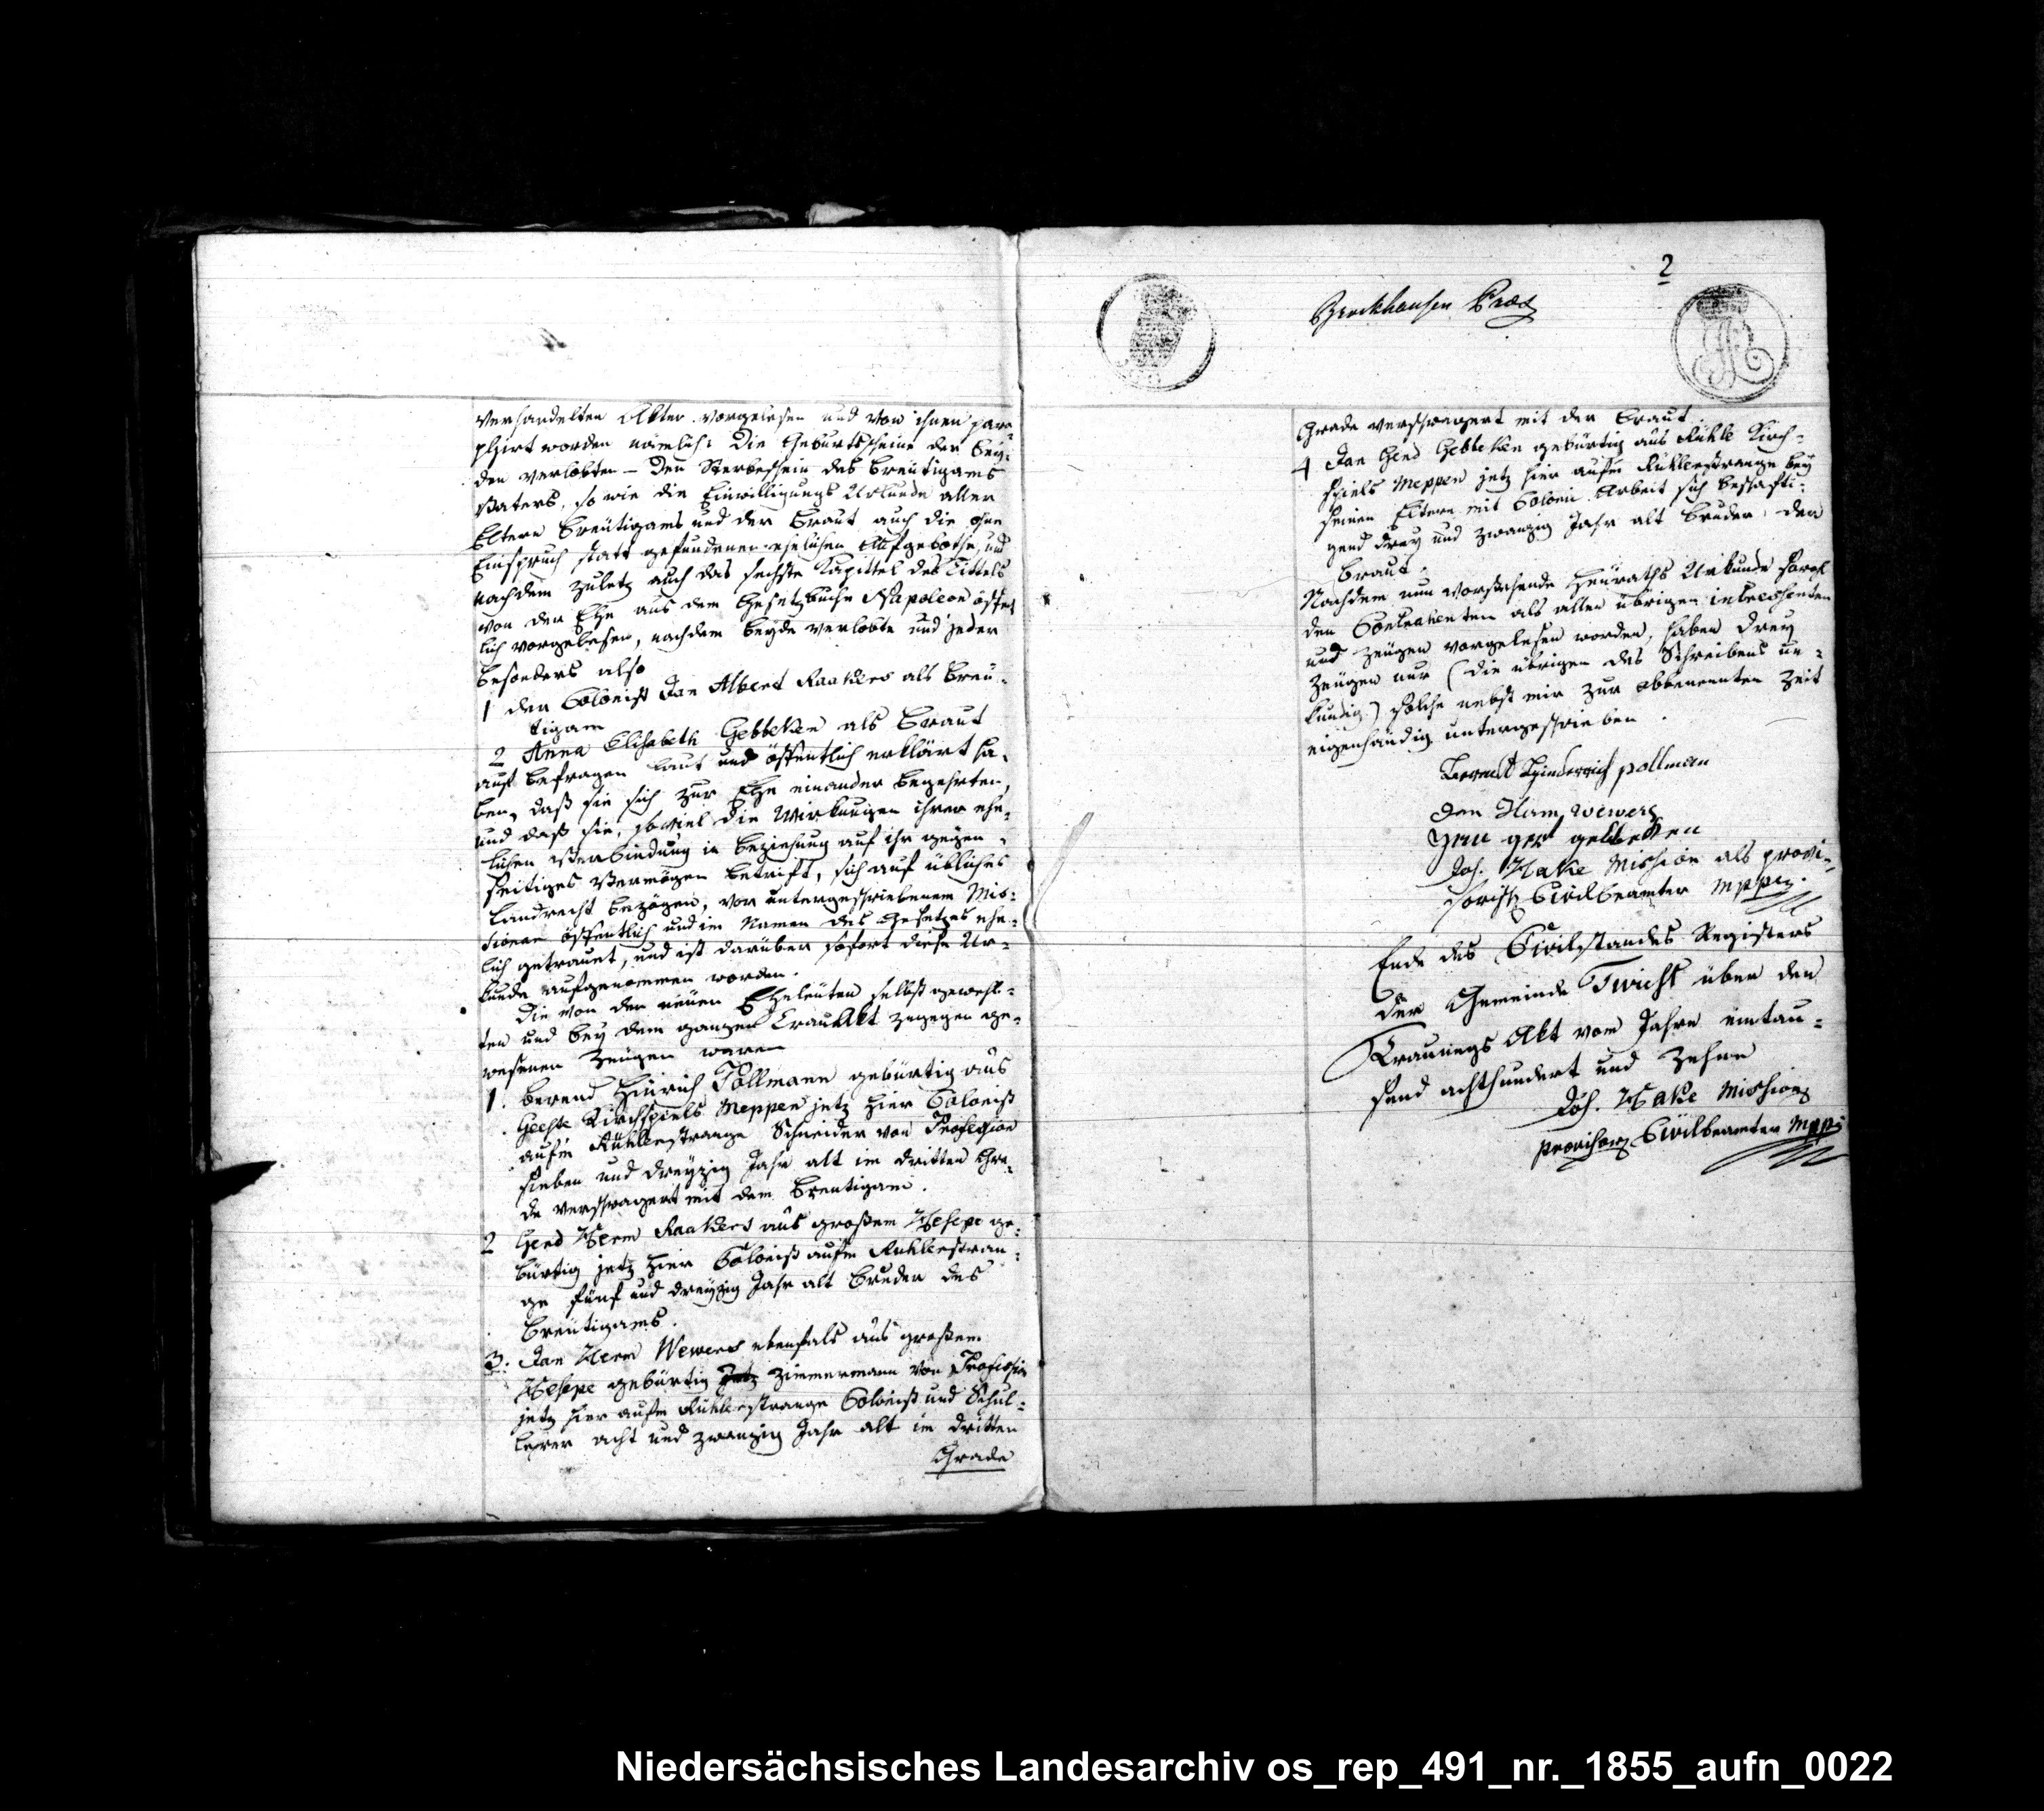 verhandelten Akten vorgelesen und von ihnen para-
phirt worden nämlich: Die Geburtsscheine der bey-
den verlobten — den Sterbeschein des breutigams
Vaters, so wie die Einwilligungs Urkunde aller
Eltern breutigams und der braut auch die ohne
Einspruch statt gefundenen ehelichen Aufgebothe, und
nachdem zuletz auch das sechste Kapittel des Tittels
von der Ehe aus dem Gesetzbuche Napoleon öffent
lich vorgelesen, nachdem beyde verlobte und jeder
besonders also
1 der Colonist Jan Albert Raakers als breu-
tigam
2 Anna Elisabeth Gebbeken als braut
auf befragen laut und öffentlich erklärt ha-
ben, daß sie sich zur Ehe einander begehrten,
und daß sie, soviel die Wirkungen ihrer ehe-
lichen Verbindung in beziehung auf ihr gegen-
seitiges Vermögen betrift, sich auf übliches
Landrecht bezögen, von untergeschriebenem Mis-
sionar öffentlich und im Namen des Gesetzes ehe-
lich getrauet, und ist darüber sofort diese Ur-
kunde aufgenommen worden.
Die von den neuen Eheleuten selbst gewehl-
ten und bey dem ganzen TrauAkt zugegen ge-
wesenen Zeugen waren
1. berend Hinrich Pollmann gebürtig aus
Geeste Kirchspiels Meppen jetz hier Colonist
aufm Rühlerstrange Schneider von Profession
sieben und dreyzig Jahr alt im dritten Gra-
de verschwagert mit dem breutigam.
2 Gerd Herm Raakers aus großem Hesepe ge-
bürtig jetz hier Colonist aufm Rühlerstran-
ge fünf und dreyzig Jahr alt bruder des
breutigams.
3. Jan Herm Wewers ebenfals aus großem
Hesepe gebürtig jetz zimmermann von Profession
jetz hier aufm Rühlerstrange Colonist und Schul-
lehrer acht und zwanzig Jahr alt im dritten
Grade
2
Brockhausen Präs
Grade verschwagert mit der braut
4 Jan Gerd Gebbeken gebürtig aus Rühle Kirch-
spiels Meppen jetz hier aufm Rühlerstrange bey
seinen Eltern mit Coloni Arbeit sich beschäfti-
gend drey und zwanzig Jahr alt bruder der
braut.
Nachdem nun vorstehende Heuraths Urkunde sowol
den Contrahenten als allen übrigen interessenten
und zeugen vorgelesen worden, haben drey
zeugen nur (die übrigen des Schreibens un-
kundig) solche nebst mir zur obbenennten Zeit
eigenhändig untergeschrieben.
Berendt Hinderrich pollman
Jan Harm wewers
Jan gerd gebbeken
Joh. Hake Mission als provi-
sorisch Civilbeamter mppr.
Ende des Civilstandes Registers
der Gemeinde Twist über den
Trauungs Akt vom Jahre eintau-
send achthundert und zehne
Joh. Hake Mission
provisor Civilbeamter Mppr
Niedersächsisches Landesarchiv os_rep_491_nr._1855_aufn_0022